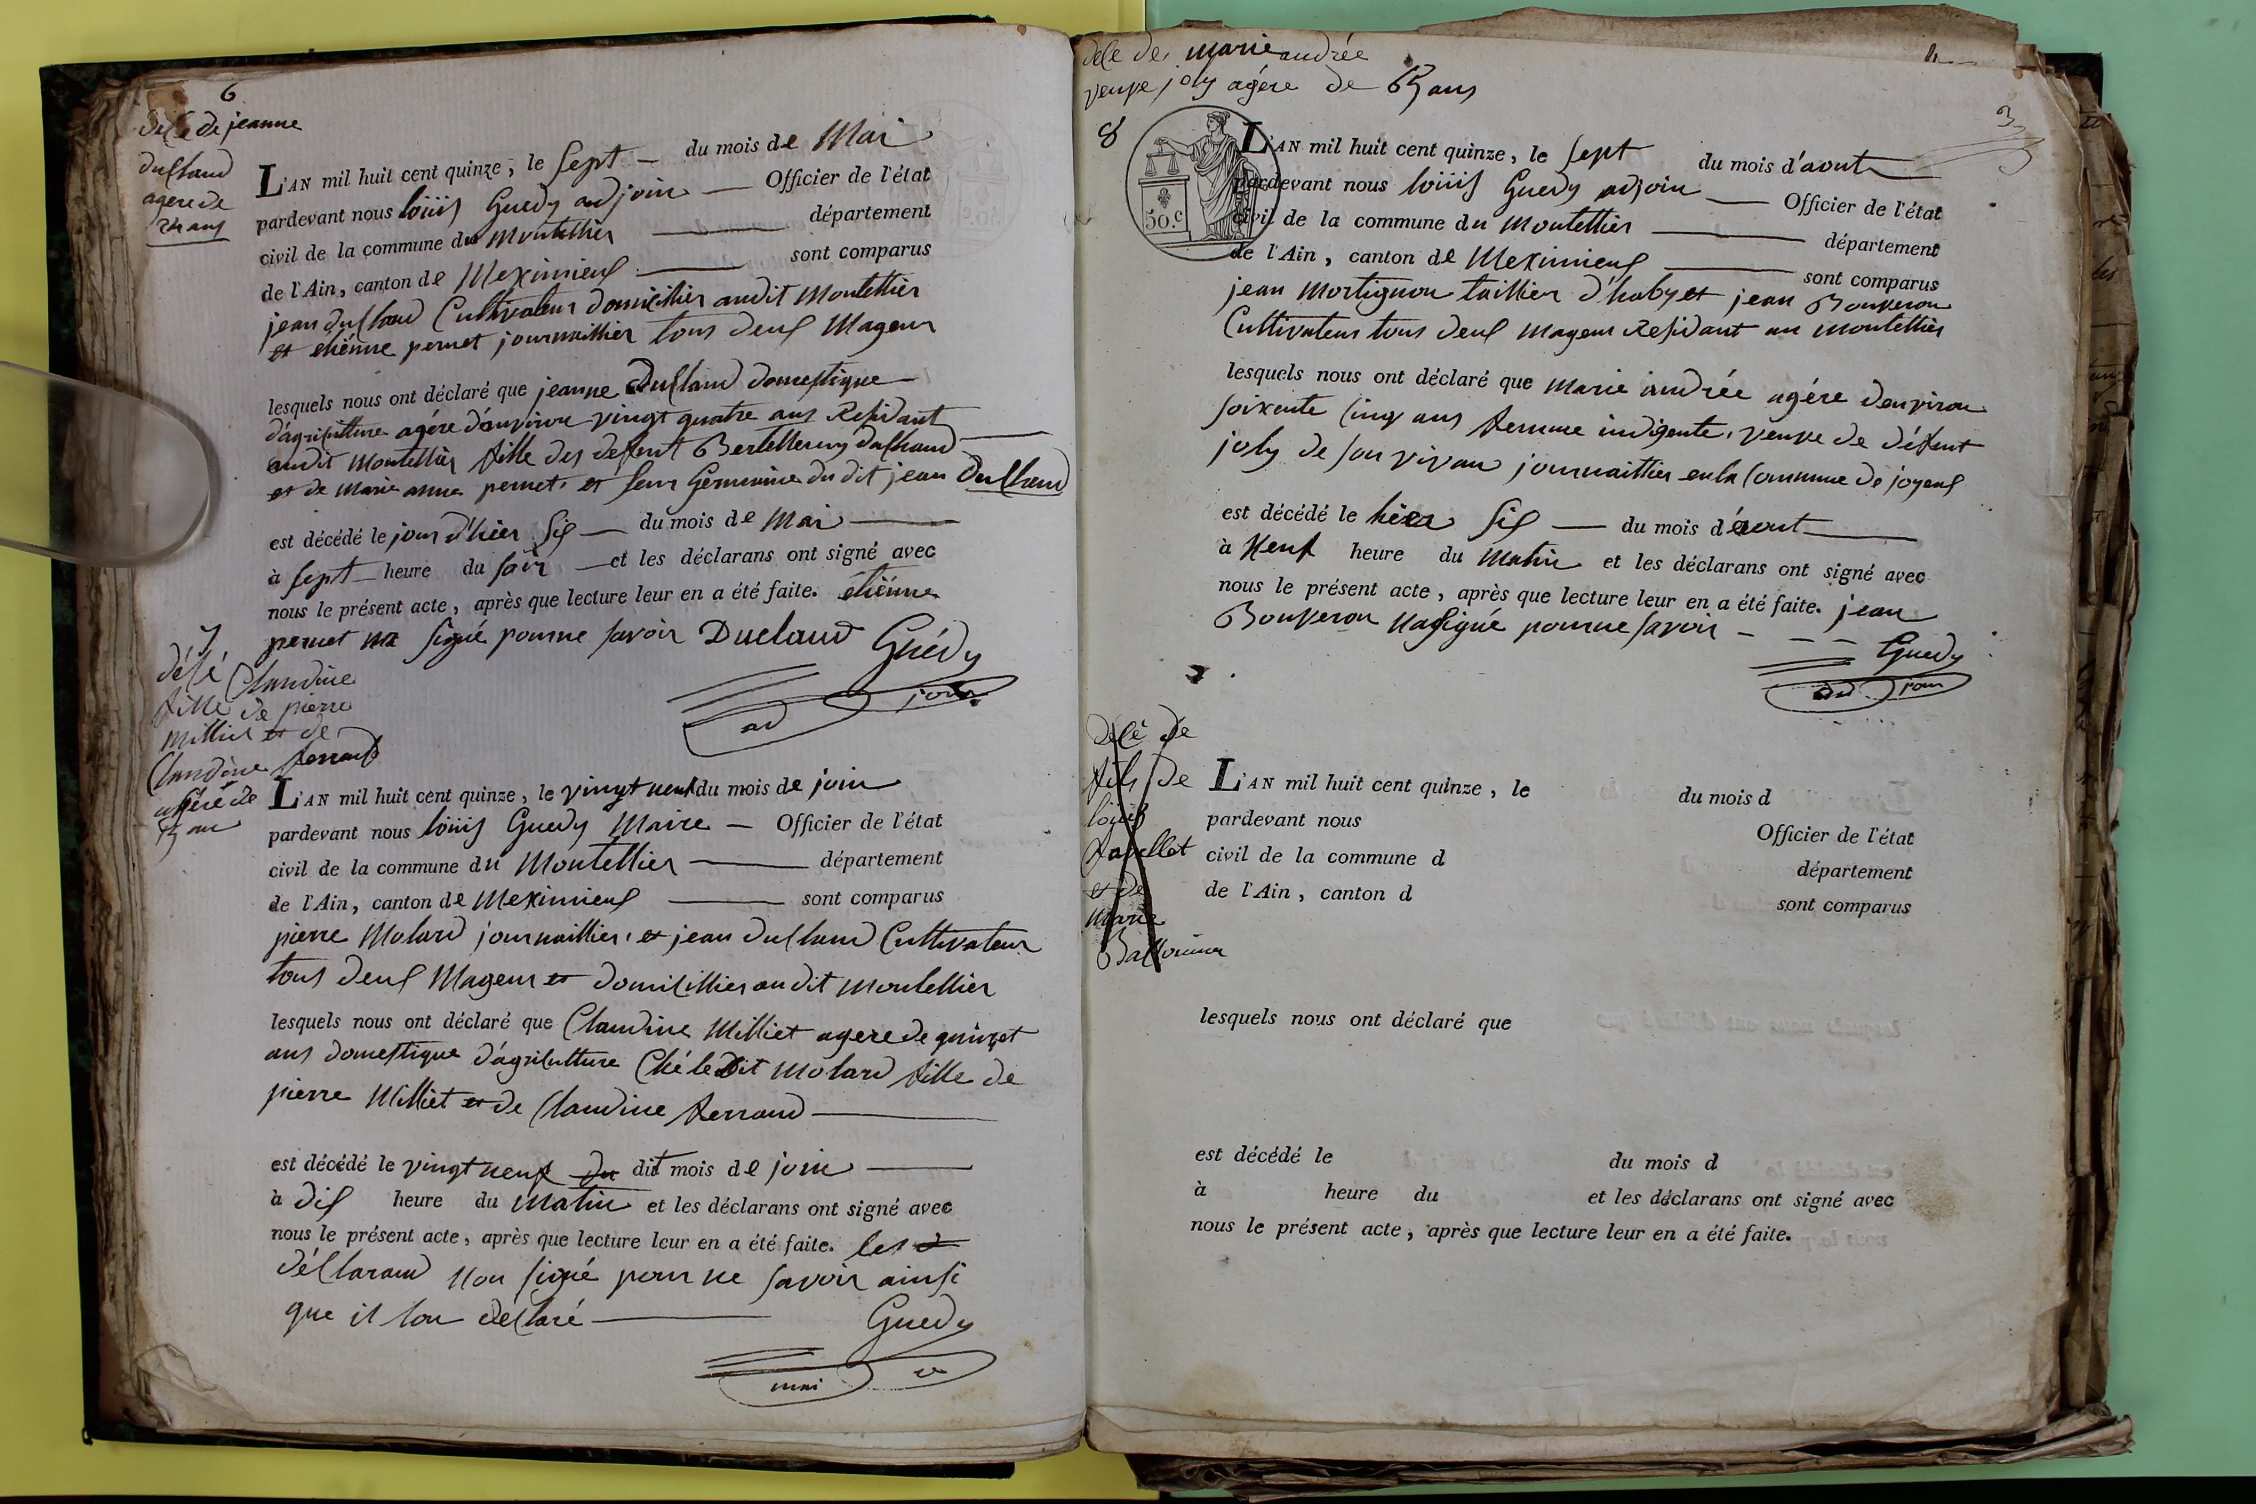 6
décé de jeanne
duclaud
agére de
24 ans
L'AN mil huit cent quinze, le sept — du mois de Mai
pardevant nous loüis Guedy adjoin — Officier de l'état
civil de la commune du Montellier — département
de l'Ain, canton de Meximieux — sont comparus
jean duclaud Cultivateur domicillier audit Montellier
et etiénne pernet journaillier tous deux Mageur
lesquels nous ont déclaré que jeanne Duclaud domestique
d'agriculture agére d'environ vingt quatre ans Residant
audit Montellier fille des defunt Bertellemy duclaud —
et de marie anne pernet, et seur Germaine du dit jean Duclaud
est décédé le jour d'hier six — du mois de Mai —
à sept — heure du soir — et les déclarans ont signé avec
nous le présent acte, après que lecture leur en a été faite. etiénne
pernet na signé pour ne savoir Duclaud Guédy
ad join
7
décé Claudine
fille de pierre
milliet et de
Claudine ferrand
agére de
15 ans
L'AN mil huit cent quinze, le vingt neuf du mois de join
pardevant nous loüis Guedy Maire — Officier de l'état
civil de la commune du Montellier — département
de l'Ain, canton de Meximieux — sont comparus
pierre Molard journaillier, et jean duclaud Cultivateur
tous deux Mageur et domicillier audit Montellier
lesquels nous ont déclaré que Claudine Milliet agere de quinzet
ans domestique d'agriculture Ché le Dit Molard fille de
pierre Milliet et de Claudine ferrand —
est décédé le vingt neuf du dit mois de join —
à dix heure du Matin et les déclarans ont signé avec
nous le présent acte, après que lecture leur en a été faite. les d
déclarand non signé pour ne savoir ainsi
que il lon déclaré — Guedy
mai re
déce de marie andrée
veuve joly agére de 65 ans
3
8
50.c
L'AN mil huit cent quinze, le sept du mois d'aout
pardevant nous loüis Guedy adjoin — Officier de l'état
civil de la commune du Montellier — département
de l'Ain, canton de Meximieux — sont comparus
jean Mortignon taillier d'haby et jean Bouveron
Cultivateur tous deux Mageur Residant au Montellier
lesquels nous ont déclaré que Marie andrée agére d'environ
soixente cinq ans femme indigente, veuve de défunt
joly de son vivan journaillier en la Commune de joyeux
est décédé le hier six — du mois d'aout —
à Neuf heure du Matin et les déclarans ont signé avec
nous le présent acte, après que lecture leur en a été faite. jean
Bouveron na signé pour ne savoir — — —
Guedy
ad join
décè de
fils de
loüis
favellet
et de
Marie
L'AN mil huit cent quinze, le du mois d
pardevant nous Officier de l'état
civil de la commune d département
de l'Ain, canton d sont comparus
lesquels nous ont déclaré que
est décédé le du mois d
à heure du et les déclarans ont signé avec
nous le présent acte, après que lecture leur en a été faite.